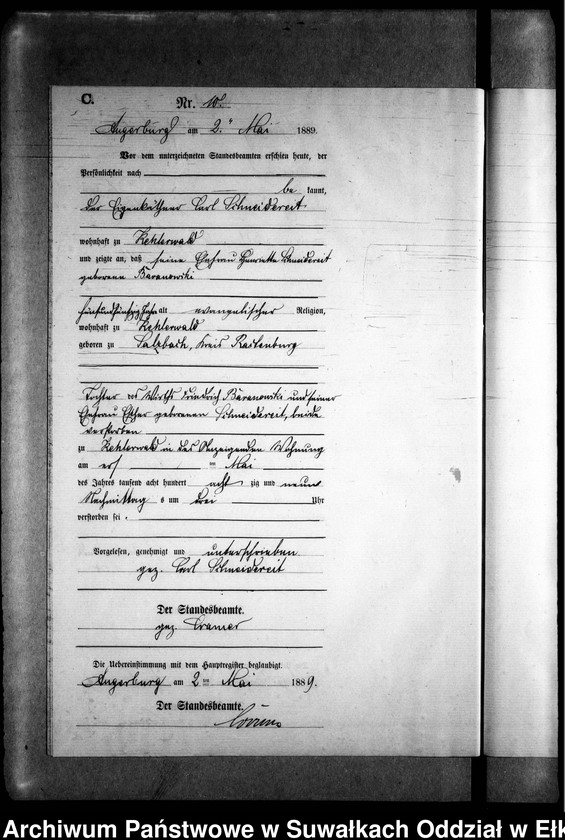 C.
Nr. 108.
Angerburg am 2. ten Mai 1889.
Vor dem unterzeichneten Standesbeamten erschien heute, der
Persönlichkeit nach
be kannt,
der Eigenkäthner Carl Schneidereit
wohnhaft zu Kehlerwald
und zeigte an, daß seine Ehefrau Henriette Schneidereit
geborene Baranowski
fünfundfünfzig Jahr alt evangelischer Religion,
wohnhaft zu Kehlerwald
geboren zu Salzbach, Kreis Rastenburg
Tochter des Wirths Friedrich Baranowski und seiner
Ehefrau Esther geborenen Schneidereit, beide
verstorben
zu Kehlerwald in des Anzeigenden Wohnung
am ersten Mai
des Jahres tausend acht hundert acht zig und neun
Nachmittag s um drei Uhr
verstorben sei.
Vorgelesen, genehmigt und unterschrieben
gez. Carl Schneidereit
Der Standesbeamte.
gez. Cramer
Die Uebereinstimmung mit dem Hauptregister beglaubigt.
Angerburg am 2 ten Mai 1889.
Der Standesbeamte.
Archiwum Państwowe w Suwałkach Oddział w Ełk